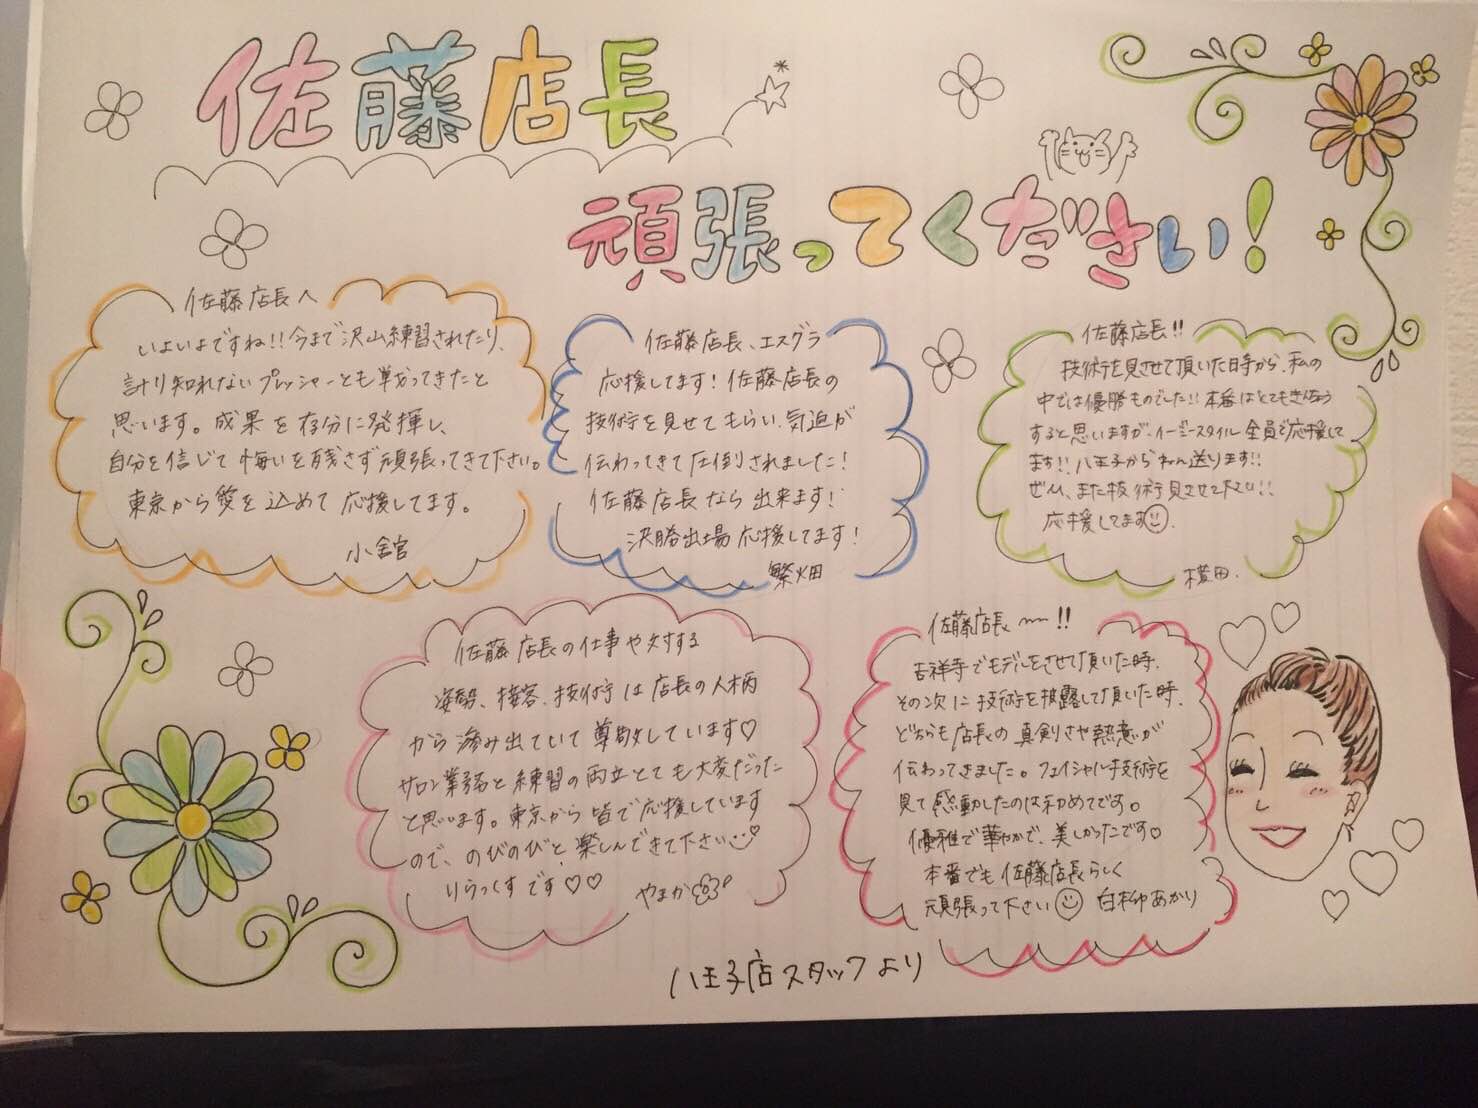 佐藤店長
頑張ってください!
佐藤店長へ
いよいよですね!!今まで沢山練習されたり、
計り知れないプレッシャーとも戦ってきたと
思います。成果を存分に発揮し、
自分を信じて悔いを残さず頑張ってきて下さい。
東京から愛を込めて応援してます。
小舘
佐藤店長、エスグラ
応援してます!佐藤店長の
技術を見せてもらい、気迫が
伝わってきて圧倒されました!
佐藤店長なら出来ます!
決勝出場応援してます!
繁畑
佐藤店長!!
技術を見させて頂いた時から、私の
中では優勝ものでした!!本番はとてもきんちょう
すると思いますが、イージースタイル全員で応援して
ます!!八王子からねん送ります!!
ぜひ、また技術見させて下さい!!
応援してます
横田.
佐藤店長の仕事や対する
姿勢、接客、技術は店長の人柄
から滲み出ていて尊敬しています♡
サロン業務と練習の両立とても大変だった
と思います。東京から皆で応援しています
ので、のびのびと楽しんできて下さい
りらっくすです♡♡
やまか
佐藤店長〜!!
吉祥寺でモデルをさせて頂いた時、
その次に技術を披露して頂いた時、
どちらも店長の真剣さや熱意が
伝わってきました。フェイシャル技術を
見て感動したのは初めてです。
優雅で華やかで、美しかったです♡
本番でも佐藤店長らしく
頑張って下さい 白柳あかり
八王子店スタッフより